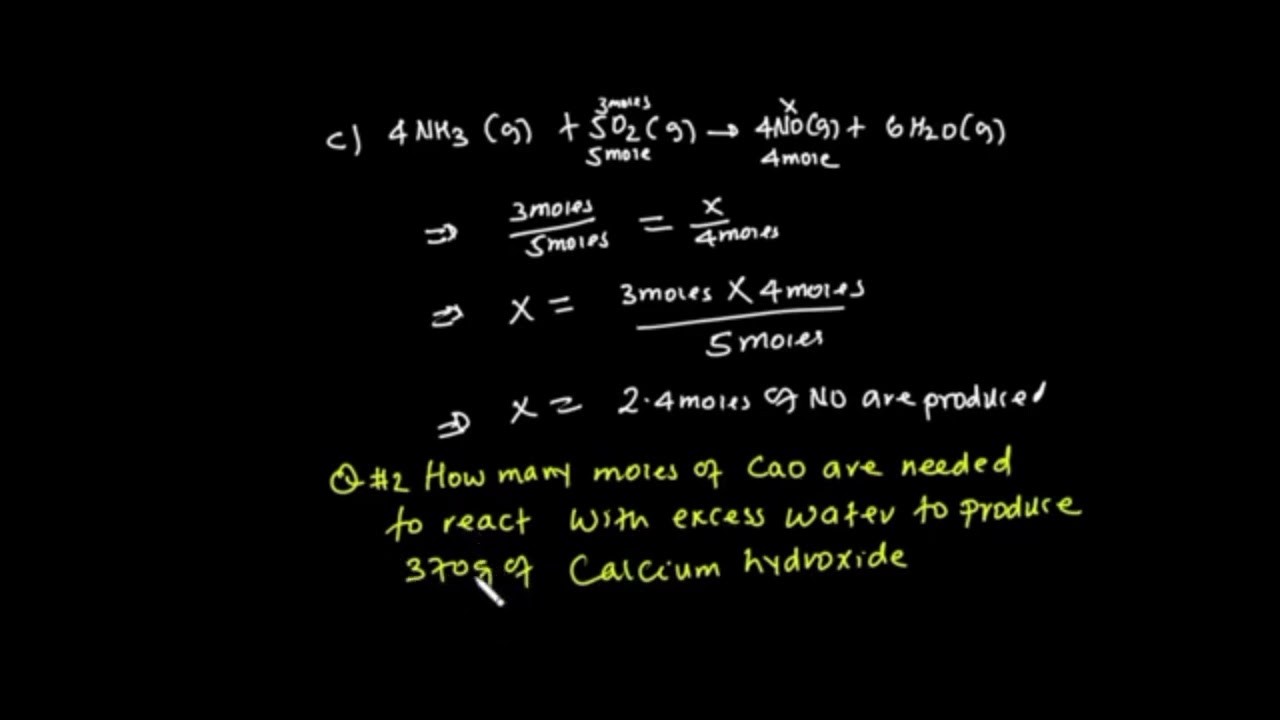 3moles x
c) 4NH3 (g) + 5O2(g) → 4NO(g) + 6H2O(g)
5mole 4mole
⇒ 3moles/5moles = x/4moles
⇒ X = 3moles X 4moles
5moles
⇒ X = 2.4moles of NO are produced
Q#2 How many moles of CaO are needed
to react with excess water to produce
370g of Calcium hydroxide